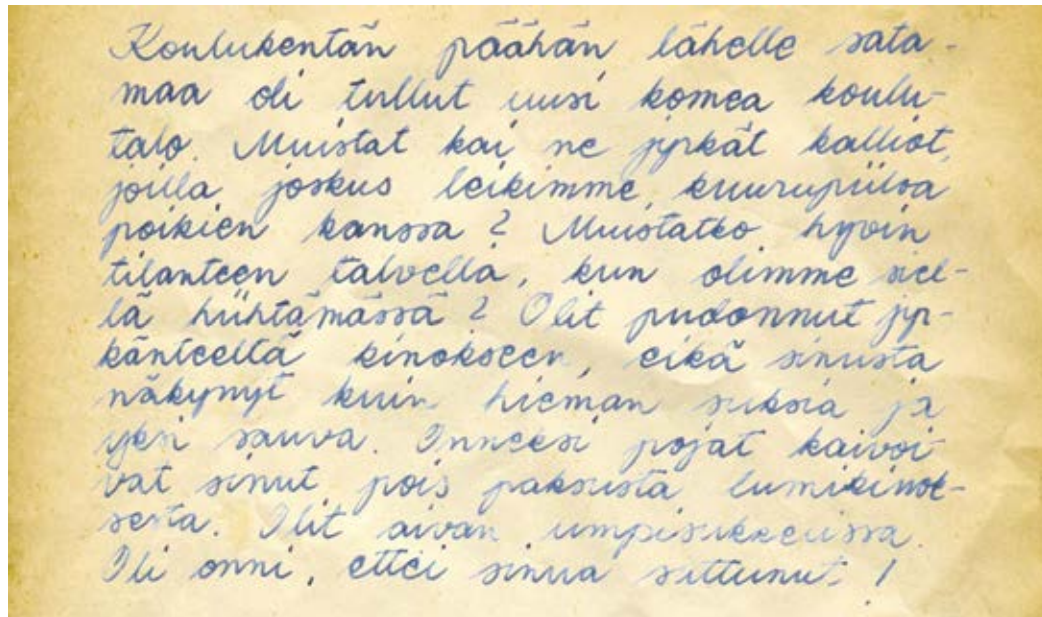 Koulukentän päähän lähelle sata-
maa oli tullut uusi komea koulu-
talo. Muistat kai ne jyrkät kalliot,
joilla joskus leikimme kuurupiiloa
poikien kanssa? Muistatko hyvin
tilanteen talvella, kun olimme siel-
lä hiihtämässä? Olit pudonnut jyr-
känteeltä kinokseen, eikä sinusta
näkynyt kuin hieman suksia ja
yksi sauva. Onneksi pojat kaivoi-
vat sinut pois paksusta lumikinok-
sesta. Olit aivan umpisukkeissa.
Oli onni, ettei sinua sattunut!